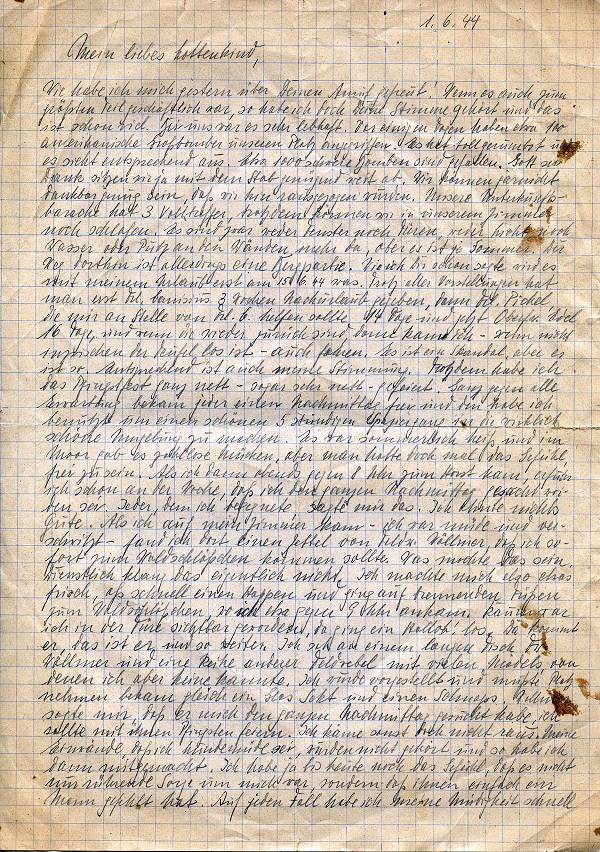 1.6.44
Mein liebes Lottenkind,
Wie habe ich mich gestern über Deinen Anruf gefreut! Wenn es auch zum
größten Teil geschäftlich war, so habe ich doch Deine Stimme gehört und das
ist schon viel. Hier war es sehr lebhaft. Vor einigen Tagen haben etwa 100
amerikanische Großbomber unseren Platz angegriffen. Es hat toll gewummt und
es sieht entsprechend aus. Etwa 1000 schwere Bomben sind gefallen. Gott sei
Dank sitzen wir ja mit dem Stab genügend weit ab. Wir können gar nicht
dankbar genug sein, daß wir hier rausgezogen wurden. Unsere Unterkunfts-
baracke hat 3 Volltreffer, trotzdem können wir in unserem Zimmer
noch schlafen. Es sind zwar weder Fenster noch Türen, weder Licht noch
Wasser oder Putz an den Wänden mehr da, aber es ist ja Sommer. Der
Weg dorthin ist allerdings eine Bergpartie. Wie ich Dir schon sagte wird es
mit meinem Urlaub erst am 15.6.44 was. Trotz aller Vorstellungen hat
man erst 3 Wochen Nachurlaub gegeben, dann der Pickel
die mir an Stelle von helfen sollte 14 Tage und jetzt Oberfw.
16 Tage, und wenn die wieder zurück sind, dann kann ich - wenn nicht
inzwischen der Teufel los ist - auch fahren. Es ist ein Skandal, aber es
ist so. Entsprechend ist auch meine Stimmung. Trotzdem habe ich
das Pfingstfest ganz nett - sogar sehr nett - gefeiert. Ganz gegen alle
Erwartung bekam jeder einen Nachmittag frei und den habe ich
benutzt um einen schönen 5 stündigen Spaziergang in die wirklich
schöne Umgebung zu machen. Es war sommerlich heiß und im
Moor gab es zahllose Mücken, aber man hatte doch mal das Gefühl
frei zu sein. Als ich dann abends gegen 8 Uhr zum Horst kam, erfuhr
ich schon an der Wache, daß ich den ganzen Nachmittag gesucht wor-
den sei. Jeder, dem ich begegnete sagte mir das. Ich ahnte nichts
Gutes. Als ich auf mein Zimmer kam - ich war müde und ver-
schwitzt - fand ich dort einen Zettel von Feldw. Vollmer, daß ich so-
fort zum Waldschlößchen kommen sollte. Was mochte das sein.
Dienstlich klang das eigentlich nicht. Ich machte mich also etwas
frisch, aß schnell einen Happen und ging auf brennenden Füßen
zum Waldschlößchen, wo ich etwa gegen 9 Uhr ankam. Kaum war
ich in der Türe sichtbar geworden, da ging ein Hallo los. Da kommt
er, das ist er und so weiter. Ich sah an einem langen Tisch
Vollmer und eine Reihe anderer Feldwebel mit vielen Mädels, von
denen ich aber keine kannte. Ich wurde vorgestellt und mußte Platz
nehmen bekam gleich ein Glas Sekt und einen Schnaps. Vollmer
sagte mir, daß er mich den ganzen Nachmittag gesucht habe, ich
sollte mit ihnen Pfingsten feiern. Ich käme sonst doch nicht raus. Meine
Einwände, daß ich hundemüde sei, wurden nicht gehört und so habe ich
dann mitgemacht. Ich habe ja bis heute noch das Gefühl, daß es nicht
nur rührende Sorge um mich war, sondern daß ihnen einfach ein
Mann gefehlt hat. Auf jeden Fall habe ich meine Müdigkeit schnell